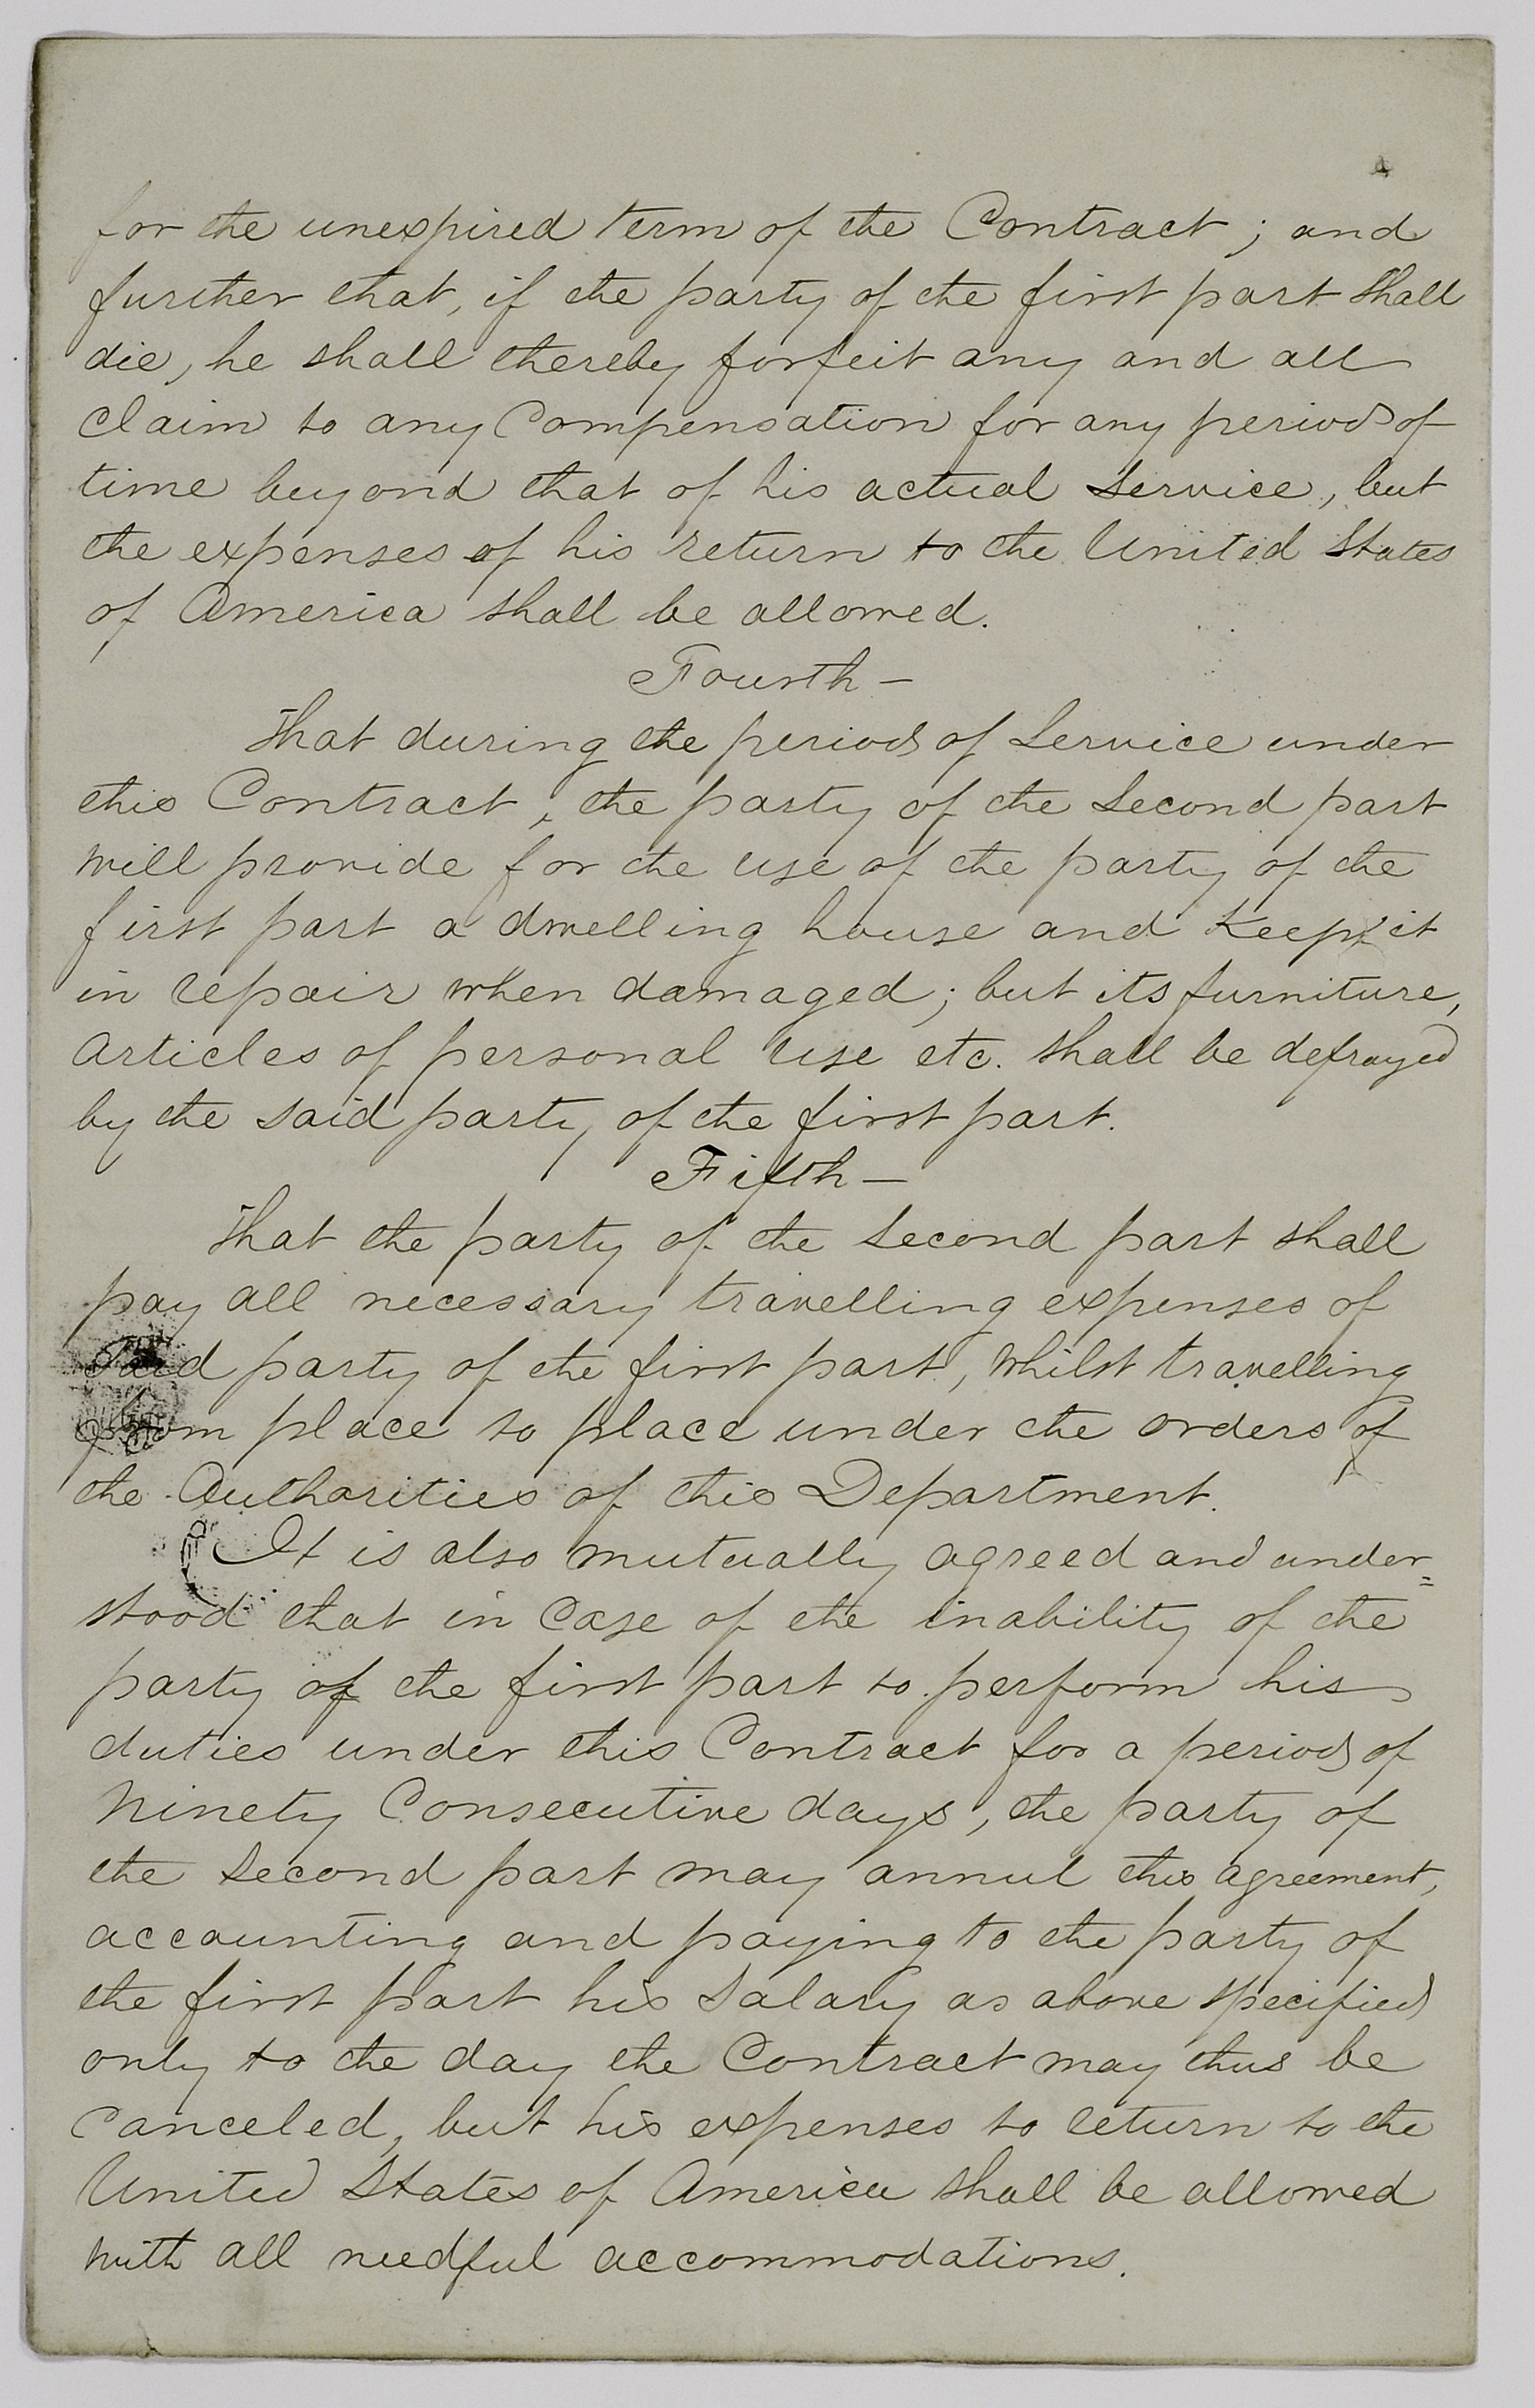 for the unexpired term of the Contract; and
further that, if the party of the first part shall
die, he shall thereby forfeit any and all
claim to any Compensation for any period of
time beyond that of his actual Service, but
the expenses of his return to the United States
of America shall be allowed.
Fourth —
That during the period of Service under
this Contract, the party of the Second part
will provide for the use of the party of the
first part a dwelling house and Keep it
in repair when damaged; but its furniture,
Articles of personal use etc. shall be defrayed
by the said party of the first part.
Fifth —
That the party of the Second part shall
pay all necessary travelling expenses of
said party of the first part, whilst travelling
from place to place under the orders of
the Authorities of this Department.
It is also mutually agreed and under=
stood that in Case of the inability of the
party of the first part to perform his
duties under this Contract for a period of
Ninety Consecutive days, the party of
the Second part may annul this agreement,
accounting and paying to the party of
the first part his Salary as above specified
only to the day the Contract may thus be
Canceled, but his expenses to return to the
United States of America shall be allowed
with all needful accommodations.